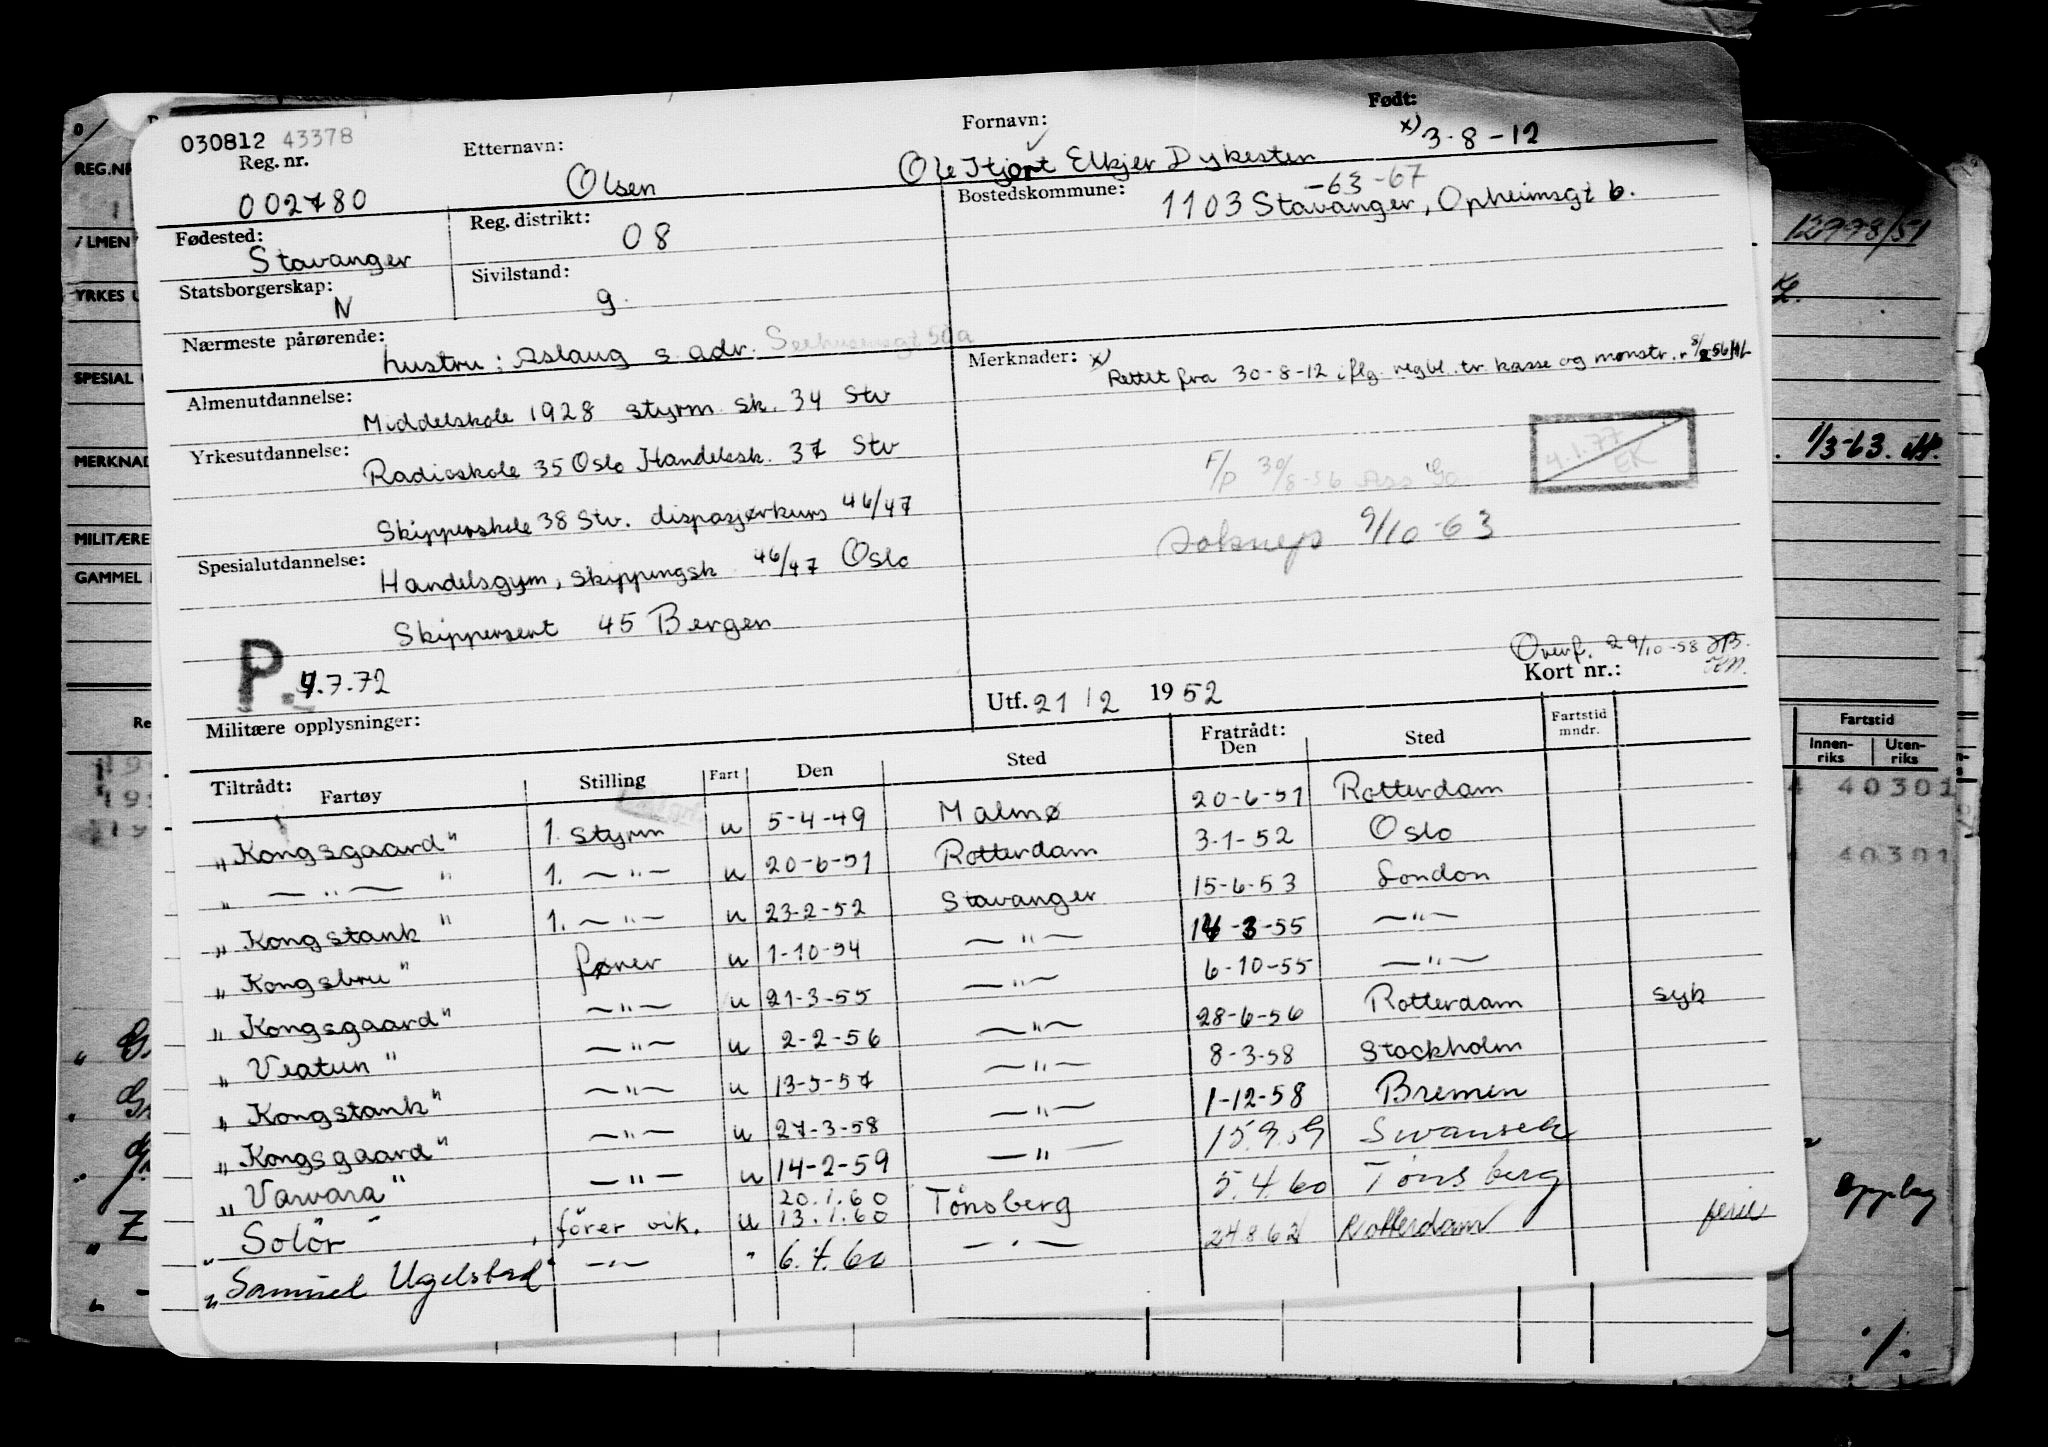 030812 43378
Reg. nr.
002780
Etternavn:
Olsen
Fornavn:
Ole Hjort Elkjer Dykesten
Født:
x) 3-8-12
Fødested:
Stavanger
Reg. distrikt:
08
Bostedskommune:
-63-67
1103 Stavanger, Opheimsgt 6.
Statsborgerskap:
N
Sivilstand:
g.
Nærmeste pårørende:
hustru: Aslaug s. adr.
Merknader: x)
Rettet fra 30-8-12 iflg. regbl. tr. kasse og mønstr.
Almenutdannelse:
Middelskole 1928 styrm. sk. 34 Stv
Yrkesutdannelse:
Radioskole 35 Oslo Handelssk. 37 Stv
Skipperskole 38 Stv. dispasjørkurs 46/47
4.1.77
EK
F/P 30/8-56
9/10-63
Spesialutdannelse:
Handelsgym, skippingsk 46/47 Oslo
Skippersert 45 Bergen
P. 4.7.72
Overf. 29/10-58
Kort nr.:
Utf. 21/2 1952
Militære opplysninger:
Tiltrådt:
Fartøy Stilling Fart Den Sted Fratrådt: Den Sted Fartstid mndr.
"Kongsgaard" 1. styrm u 5-4-49 Malmø 20-6-51 Rotterdam
" — " — " 1. — " — u 20-6-51 Rotterdam 3-1-52 Oslo
"Kongstank" 1. — " — u 23-2-52 Stavanger 15-6-53 London
"Kongsbru" fører u 1-10-54 — " — 14-3-55 — " —
"Kongsgaard" — " — u 21-3-55 — " — 6-10-55 — " —
"Vestun" — " — u 2-2-56 — " — 28-6-56 Rotterdam syk
"Kongstank" — " — u 13-5-57 — " — 8-3-58 Stockholm
"Kongsgaard" — " — u 27-3-58 — " — 1-12-58 Bremen
"Varvara" — " — u 14-2-59 — " — 15.9.59 Swansea
20.1.60
"Solör" förer vik. u 13.1.60 Tönsberg 5.4.60 Tönsberg
"Samuel Ugelstad" — " — " 6.4.60 — " — 24.8.62 Rotterdam ferie
REG.NR
YRKES U
SPESIAL
MERKNAD
MILITÆRE
GAMMEL
12778/51
1/3-63.
Fartstid
Innen-riks Uten-riks
40301
40301